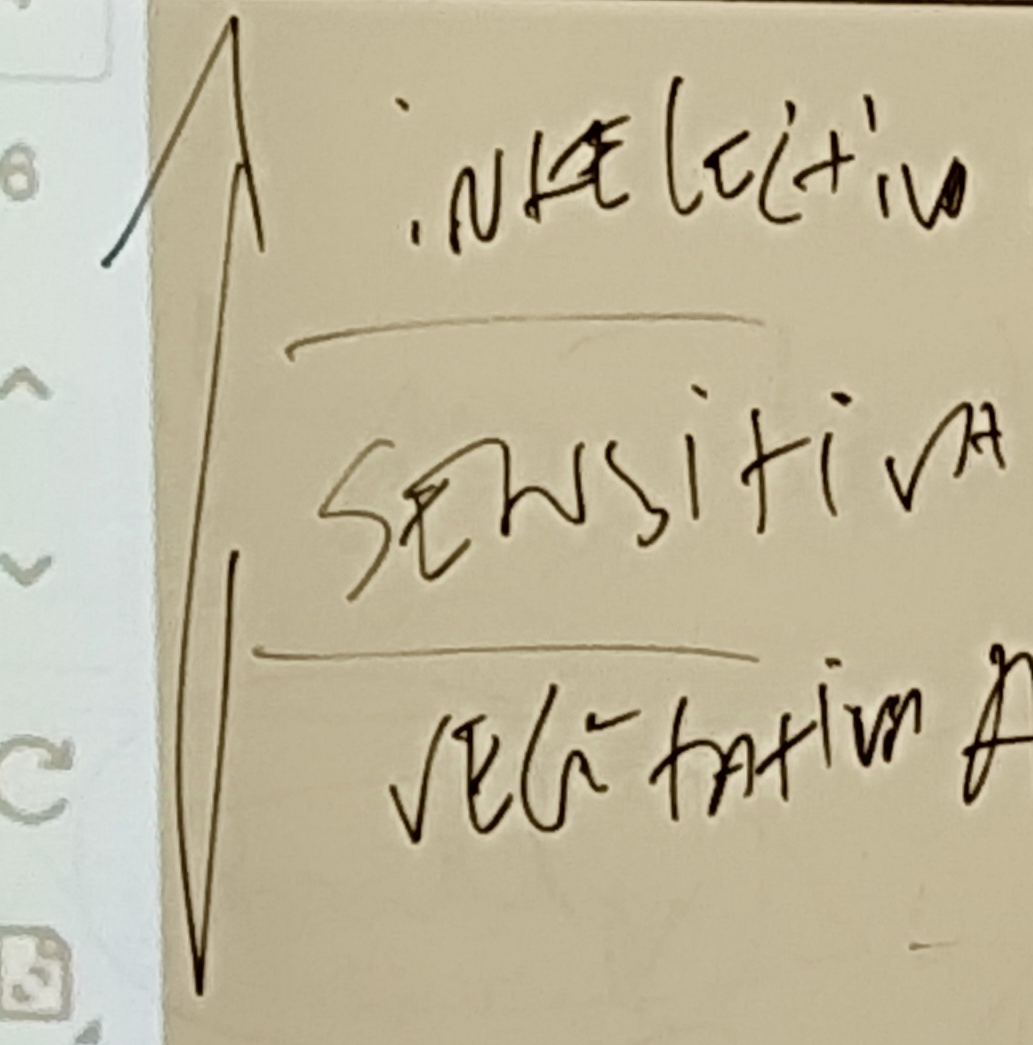 6
intelectiva
SENSITIVA
VEGETATIVA A